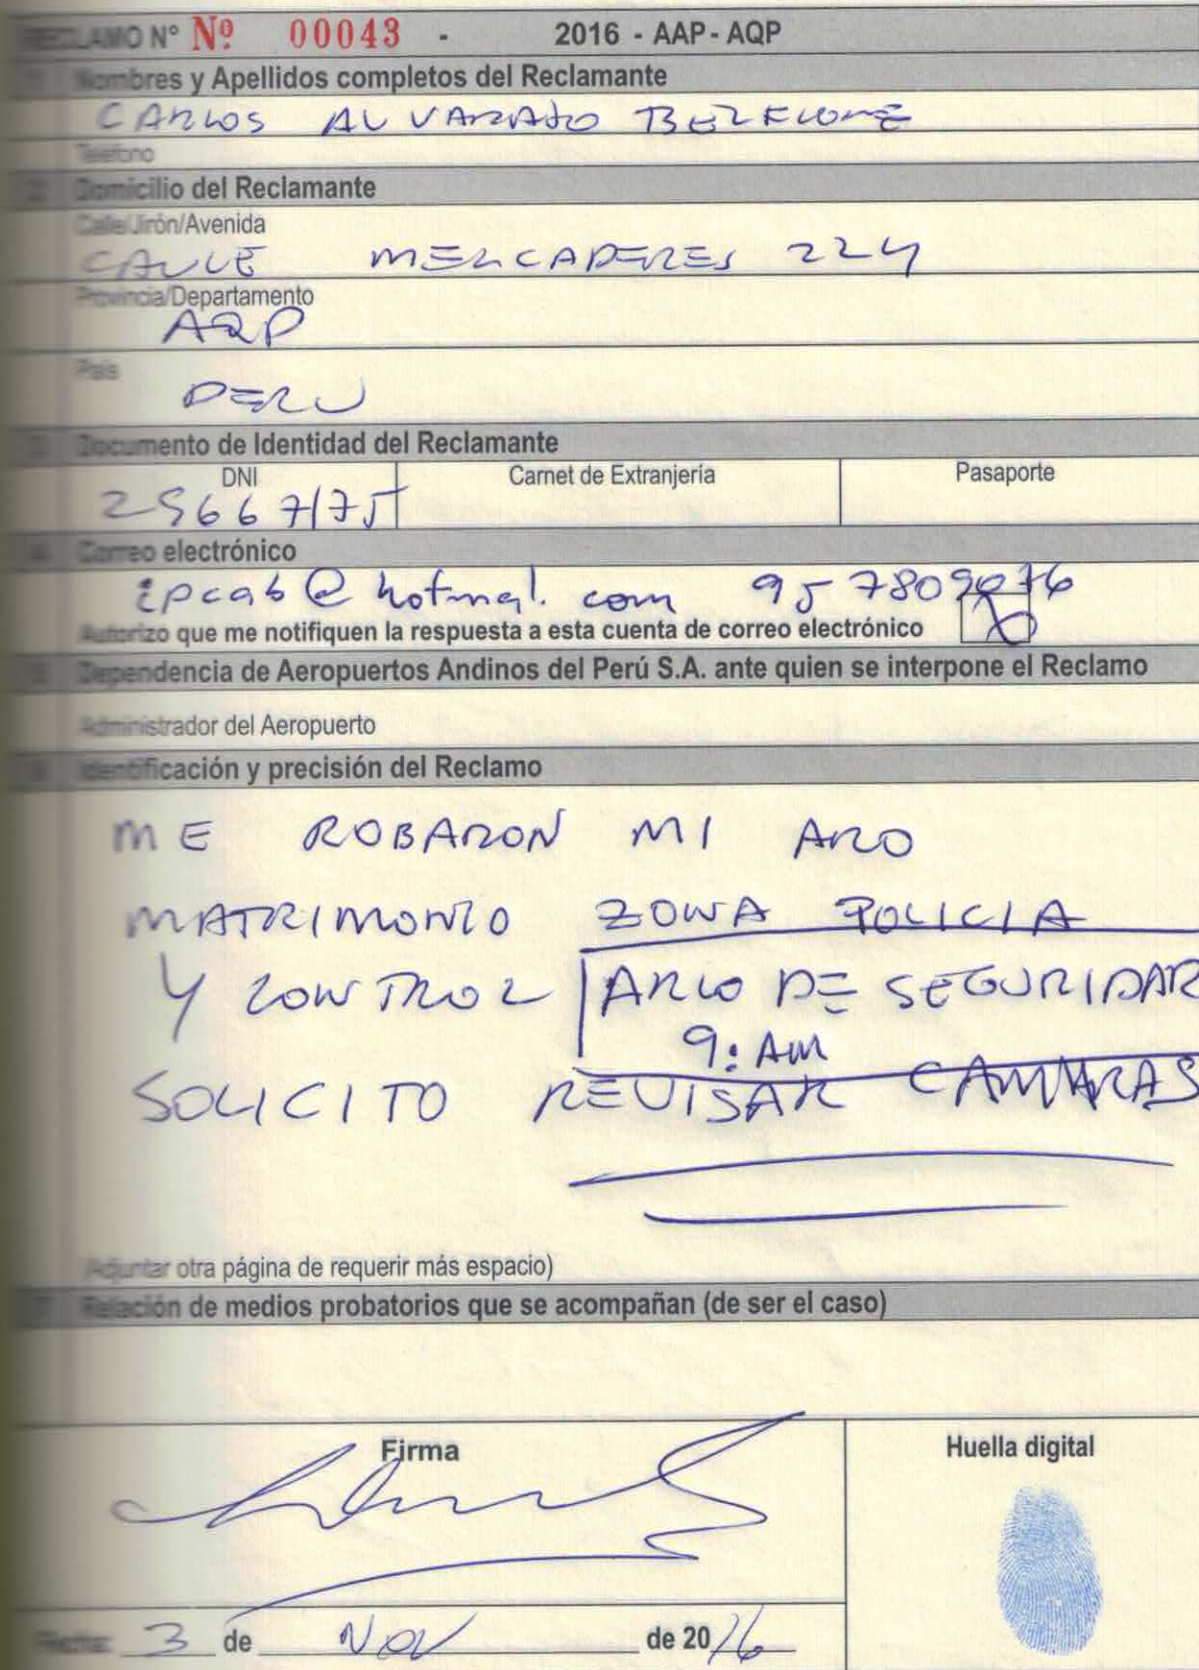 RECLAMO N° Nº 00043 - 2016 - AAP - AQP
Nombres y Apellidos completos del Reclamante
CARLOS ALVARADO
Teléfono
Domicilio del Reclamante
Calle/Jirón/Avenida
CALLE MERCADERES 224
Provincia/Departamento
AQP
País
PERU
Documento de Identidad del Reclamante
DNI Carnet de Extranjería Pasaporte
29667175
Correo electrónico
ipcab@hotmal.com
Autorizo que me notifiquen la respuesta a esta cuenta de correo electrónico
Dependencia de Aeropuertos Andinos del Perú S.A. ante quien se interpone el Reclamo
Administrador del Aeropuerto
Identificación y precisión del Reclamo
ME ROBARON MI ARO
MATRIMONIO ZONA POLICIA
Y CONTROL ARCO DE SEGURIDAD
9:AM
SOLICITO REVISAR CAMARAS
Adjuntar otra página de requerir más espacio)
Relación de medios probatorios que se acompañan (de ser el caso)
Firma Huella digital
Fecha: 3 de NOV de 2016